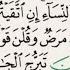 النِّسَاءِ إِنِ اتَّقَيْتُ
مَرَضٌ وَقُلْنَ قَو
تَبَرُّجَ الْجَ